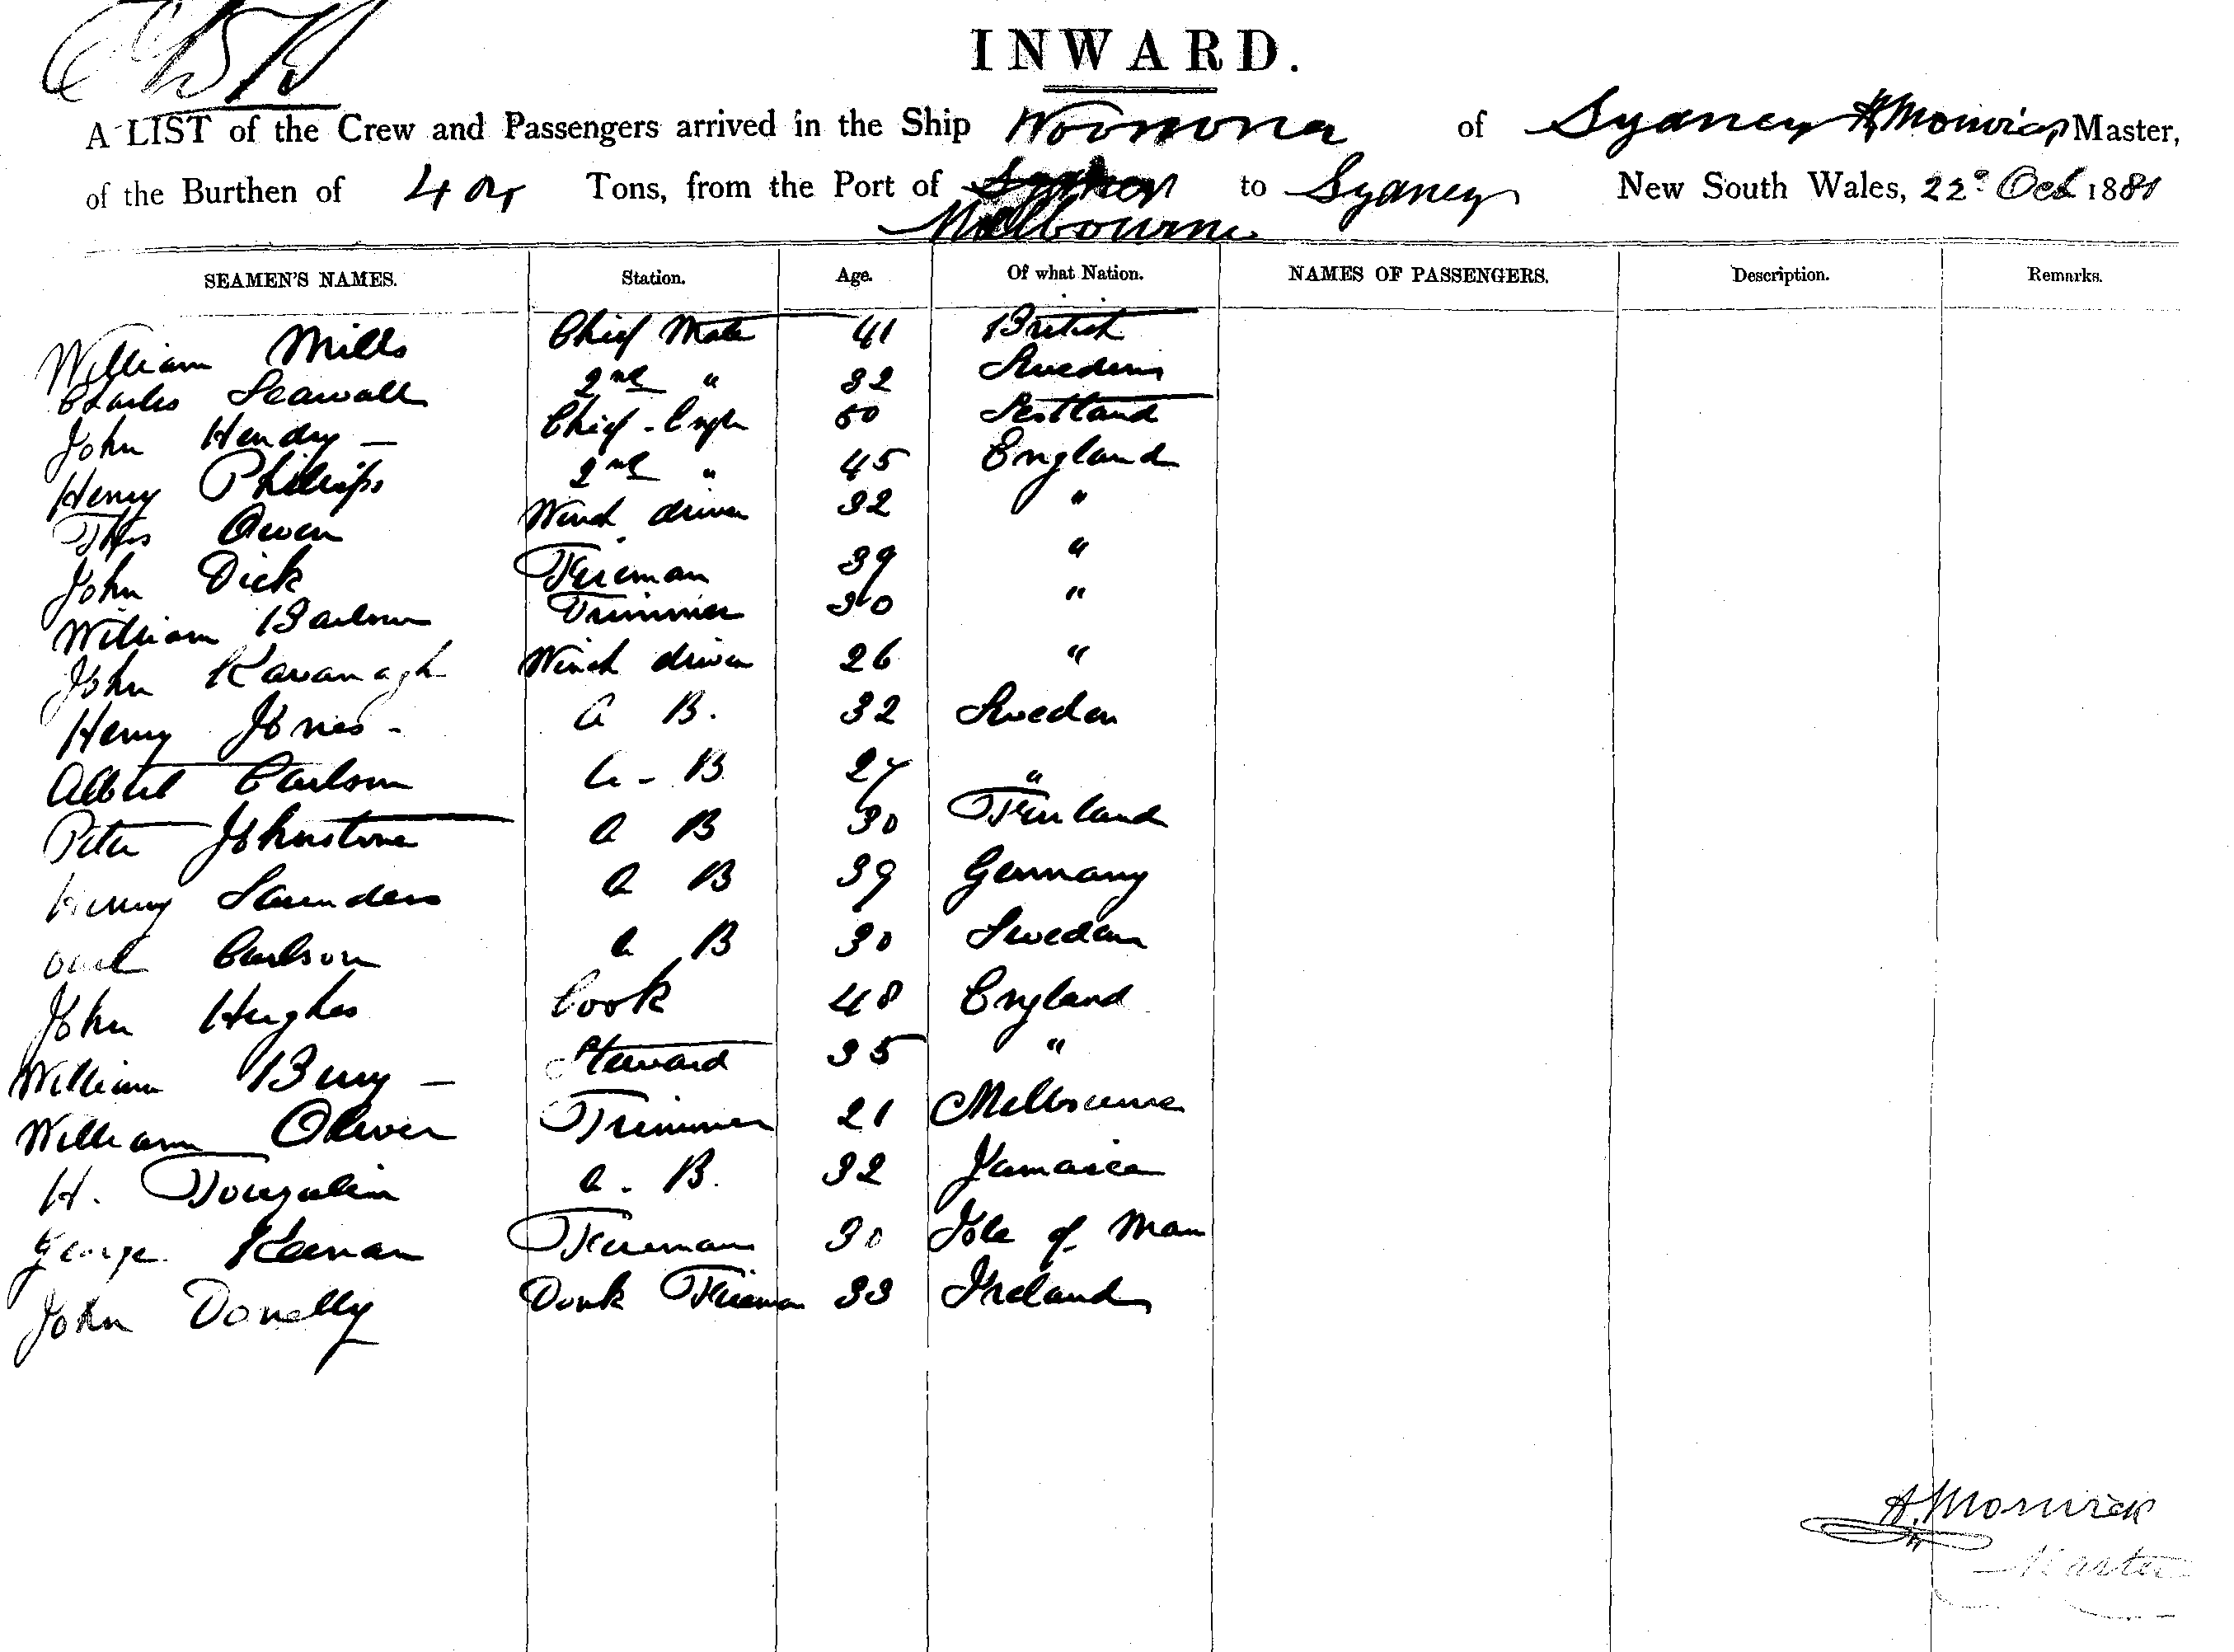 INWARD.
A LIST of the Crew and Passengers arrived in the Ship Woonona of Sydney Master,
of the Burthen of Tons, from the Port of Melbourne to Sydney New South Wales, 22d Oct 1881
SEAMEN'S NAMES. Station. Age. Of what Nation. NAMES OF PASSENGERS. Description. Remarks.
William Mills Chief Mate 41 British
Charles Seawall 2nd " 32 Sweden
John Hendry - Chief - Engr 50 Scotland
Henry Phillips 2nd " 45 England
Thos Owen Winch driver 32 "
John Dick Fireman 39 "
William Trimmer 30 "
John Kavanagh Winch driver 26 "
Henry Jones - A B. 32 Sweden
Albert Carlson A - B 27 "
Peter Johnstone A B 30 Finland
Henry Saunders A B 39 Germany
Carl Carlson A B 30 Sweden
John Hughes Cook 48 England
William Bury - Steward 35 "
William Oliver Trimmer 21 Melbourne
H. A. B. 32 Jamaica
George Keenan Fireman 30 Isle of Man
John Donelly Donk Fireman 33 Ireland
Master